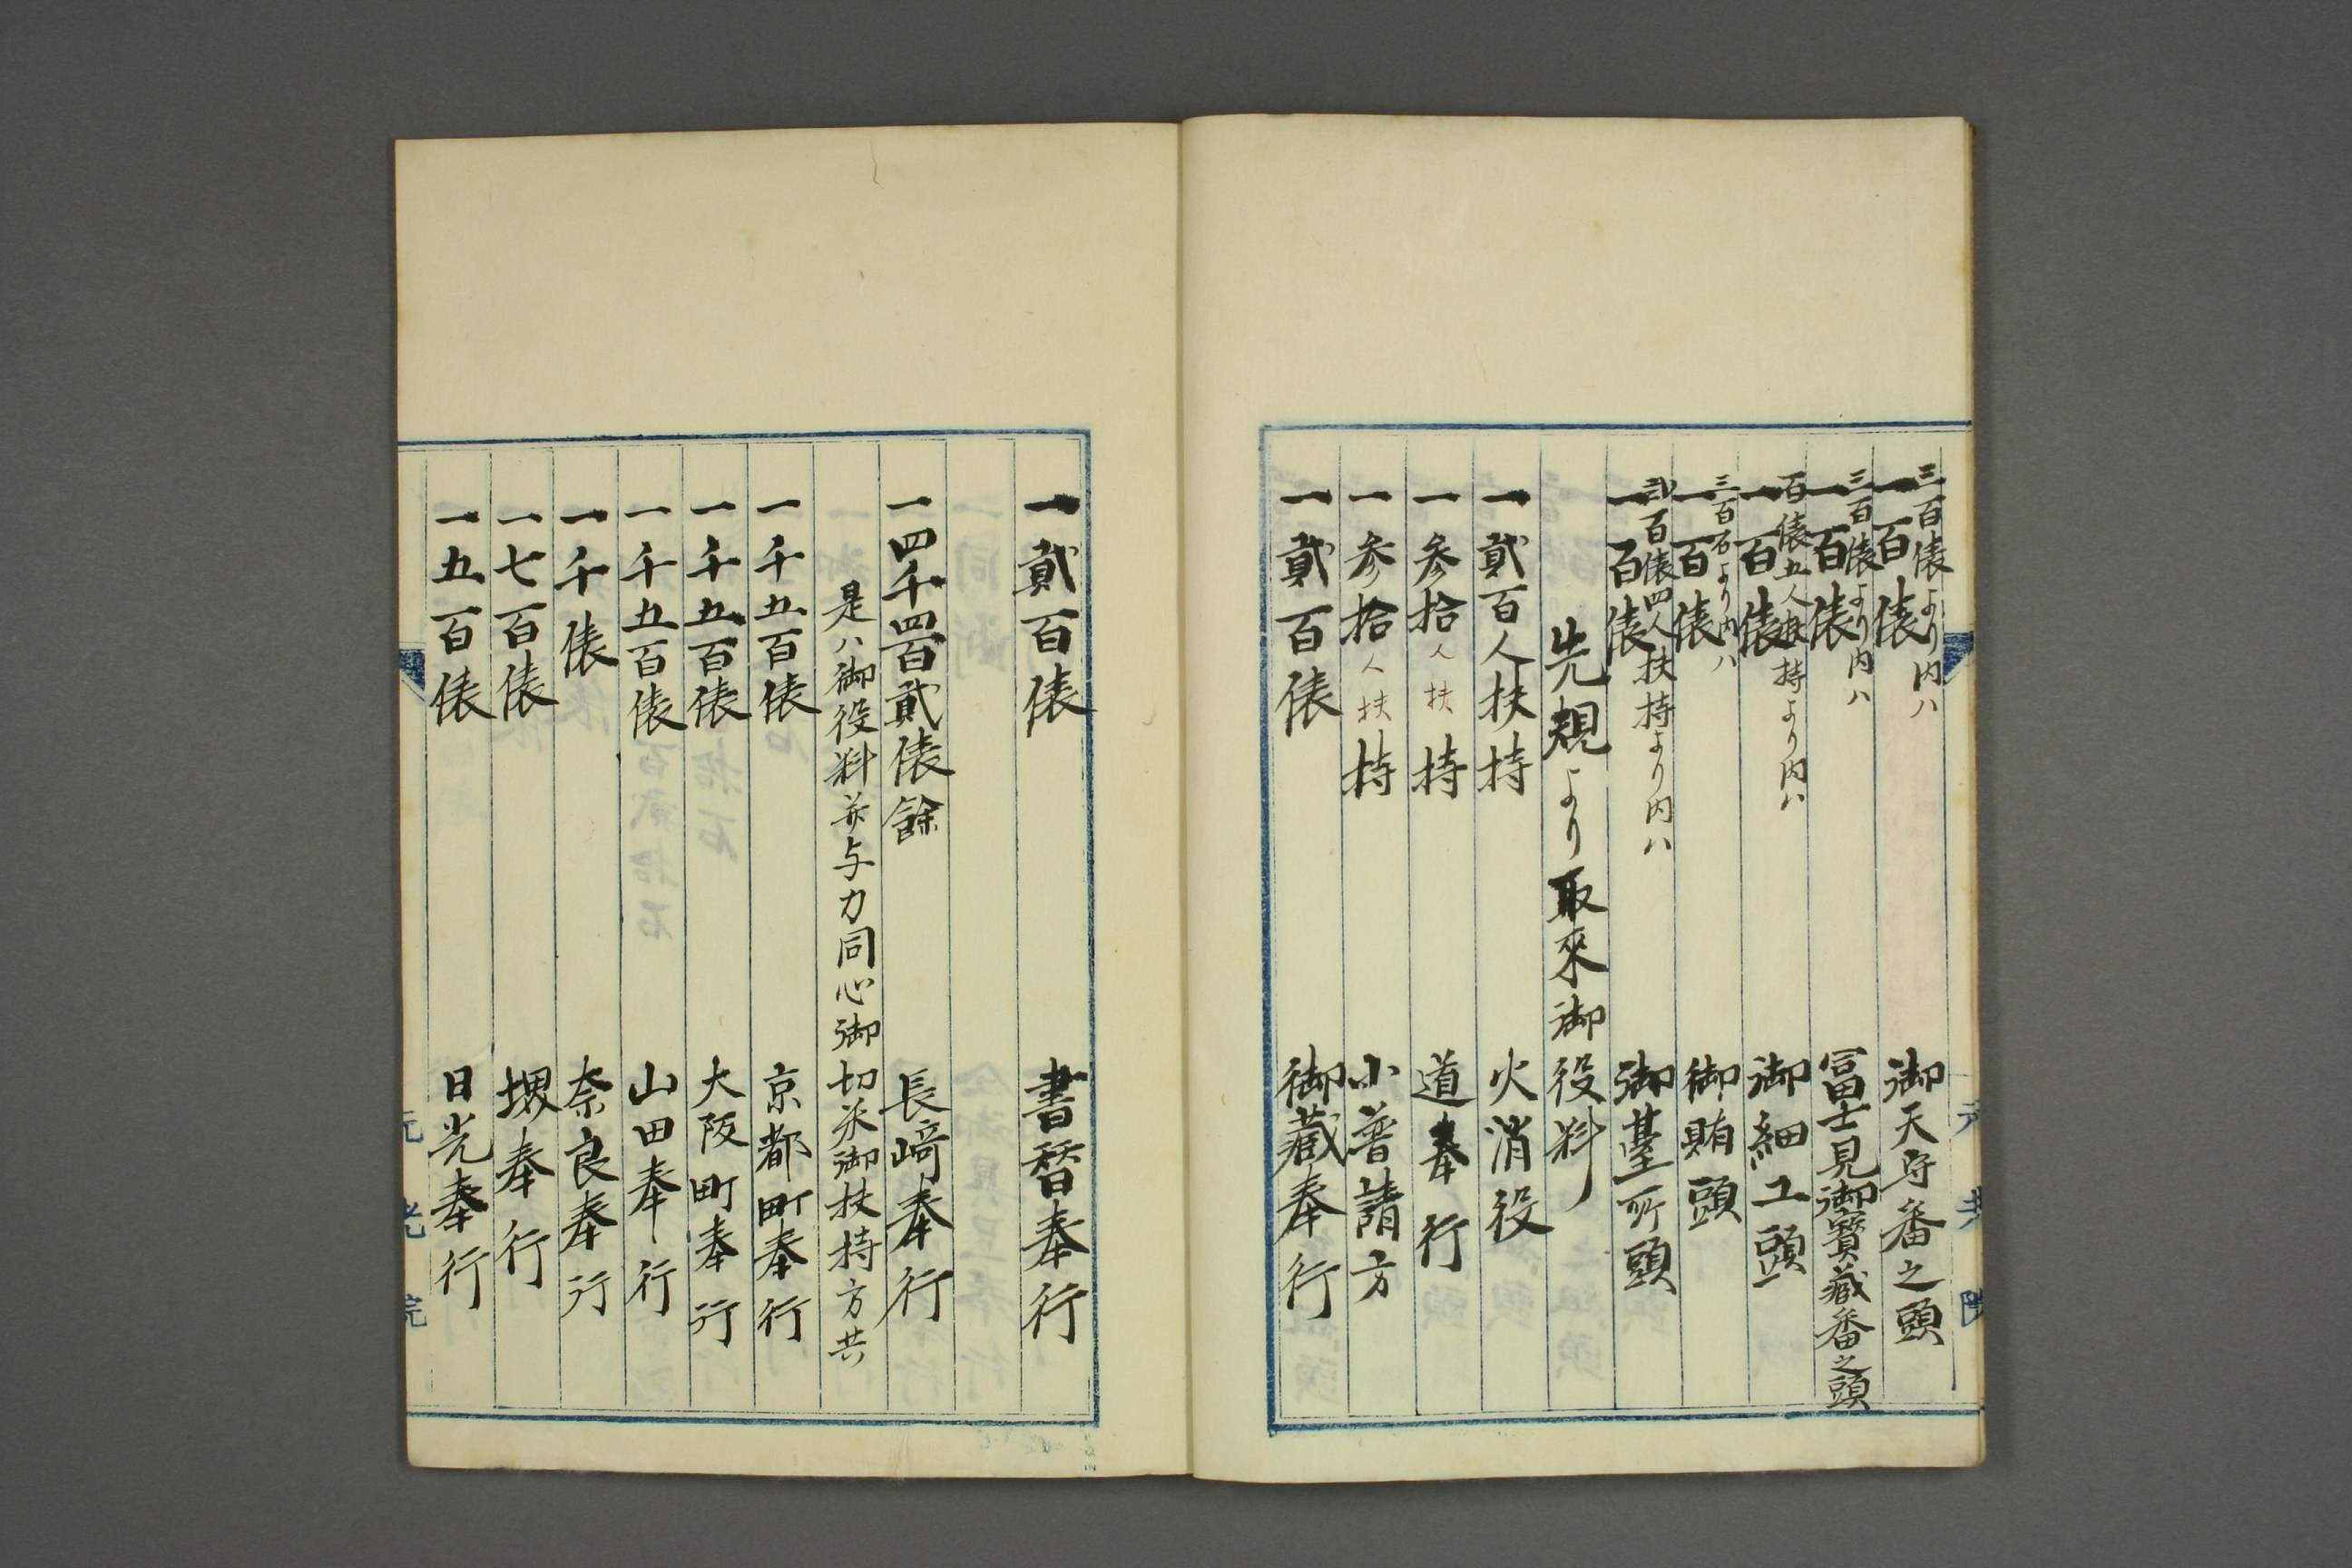 三百俵より内ハ
一百俵 御天守番之頭
三百俵より内ハ
一百俵 冨士見御寶藏番之頭
百俵五人扶持より内ハ
一百俵 御細工頭
三百石より内ハ
一百俵 御賄頭
百俵四人扶持より内ハ
一百俵 御臺所頭
先規より取來御役料
一貳百人扶持 火消役
一参拾人扶持 道奉行
一参拾人扶持 小普請方
一貳百俵 御藏奉行
一貳百俵 書替奉行
一四千四百貳俵餘 長﨑奉行
是ハ御役料并与力同心御切米御扶持方共
一千五百俵 京都町奉行
一千五百俵 大阪町奉行
一千五百俵 山田奉行
一千俵 奈良奉行
一七百俵 堺奉行
一五百俵 日光奉行
元老院